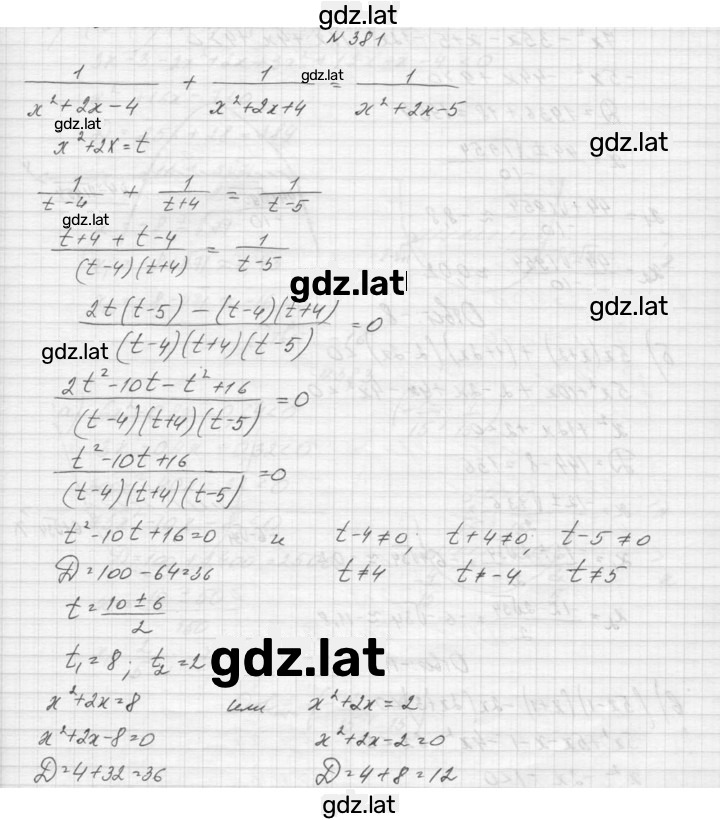 gdz.lat
N 381
1/(x²+2x-4) + 1/(x²+2x+4) = 1/(x²+2x-5)
gdz.lat
gdz.lat
x²+2x=t
gdz.lat
1/(t-4) + 1/(t+4) = 1/(t-5)
gdz.lat
(t+4+t-4)/((t-4)(t+4)) = 1/(t-5)
gdz.lat
gdz.lat
(2t(t-5)-(t-4)(t+4))/((t-4)(t+4)(t-5)) =0
gdz.lat
(2t²-10t-t²+16)/((t-4)(t+4)(t-5)) =0
(t²-10t+16)/((t-4)(t+4)(t-5)) =0
t²-10t+16=0 и t-4≠0; t+4≠0; t-5≠0
D=100-64=36 t≠4 t≠-4 t≠5
t=(10±6)/2
t₁=8; t₂=2
gdz.lat
x²+2x=8 или x²+2x=2
x²+2x-8=0 x²+2x-2=0
D=4+32=36 D=4+8=12
gdz.lat